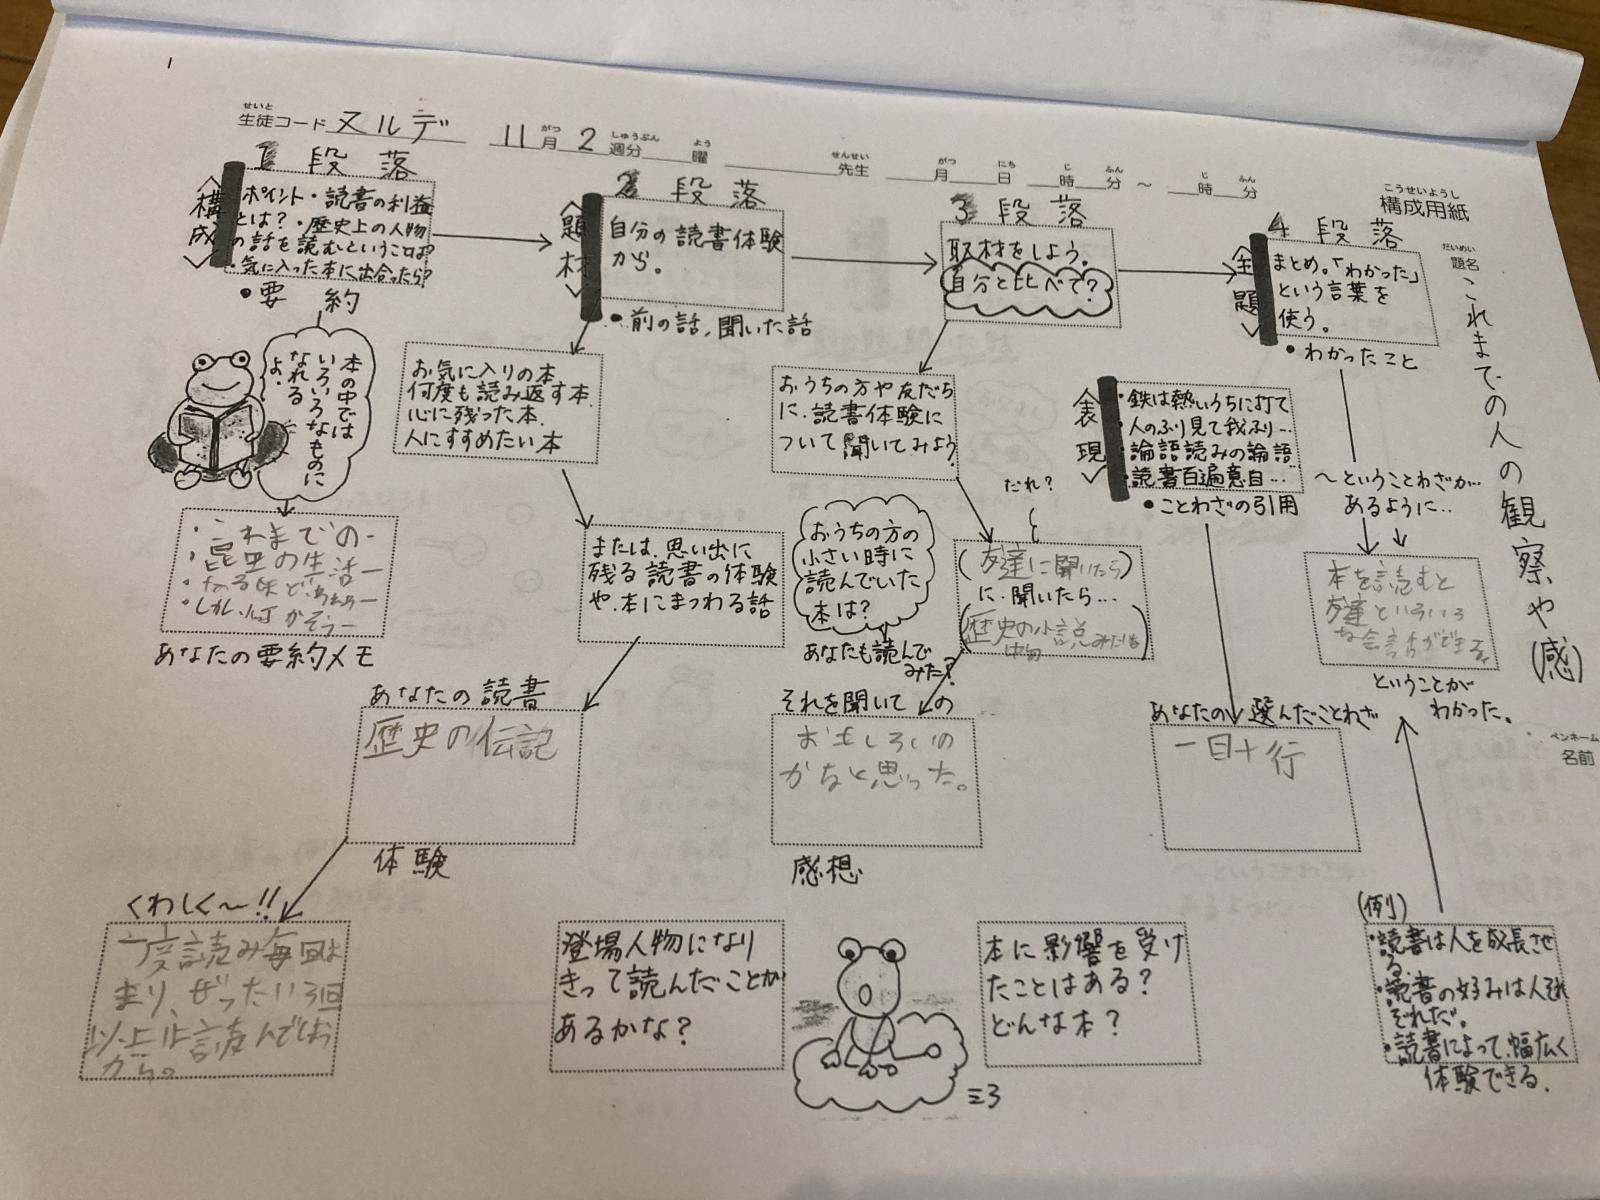 1
せいと
生徒コード ヌルデ 11月 2週分 曜 先生 月 日 時 分 ～ 時 分
がつ しゅうぶん よう せんせい がつ にち じ ふん じ ふん
こうせいようし
構成用紙
だいめい
題名 これまでの人の観察や(感)
ペンネーム
名前
1 段落
〈構成〉
ポイント・読書の利益
とは?・歴史上の人物
の話を読むということは?
・気に入った本に出会ったら?
・要約
本の中では
いろいろなものに
なれる
よ。
・これまでの-
・昆虫の生活-
あなたの要約メモ
2 段落
〈題材〉
自分の読書体験
から。
・前の話,聞いた話
お気に入りの本
何度も読み返す本.
心に残った本.
人にすすめたい本
または、思い出に
残る読書の体験
や、本にまつわる話
あなたの読書
歴史の伝記
体験
くわしく～!!
一度読み毎回は
まり、ぜったい3回
以上は読んでしお
がら。
登場人物になり
きって読んだことが
あるかな?
3 段落
取材をしよう。
自分と比べて?
おうちの方や友だち
に、読書体験に
ついて聞いてみよう。
だれ?
おうちの方の
小さい時に
読んでいた
本は?
あなたも読んで
みた?
(友達に聞いたら)
に、聞いたら…
それを聞いての
おもしろいの
かなと思った。
感想
本に影響を受け
たことはある?
どんな本?
4 段落
〈主題〉
まとめ。「わかった」
という言葉を
使う。
・わかったこと
〈表現〉
・鉄は熱いうちに打て
・人のふり見て我ふり…
・論語読みの論語
・読書百遍意自…
・ことわざの引用
～ということわざが…
あるように..
本を読むと
友達といろいろ
な会話ができる
ということが
わかった。
あなたの選んだことわざ
一目十行
(例)
・読書は人を成長させ
る.
・読書の好みは人それ
ぞれだ。
・読書によって、幅広く
体験できる.